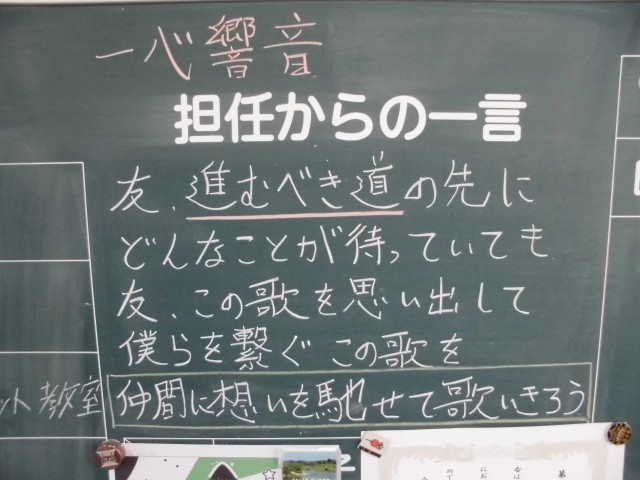 一心響音
担任からの一言
友、進むべき道の先に
どんなことが待っていても
友、この歌を思い出して
僕らを繋ぐこの歌を
仲間に想いを馳せて歌いきろう
ット教室